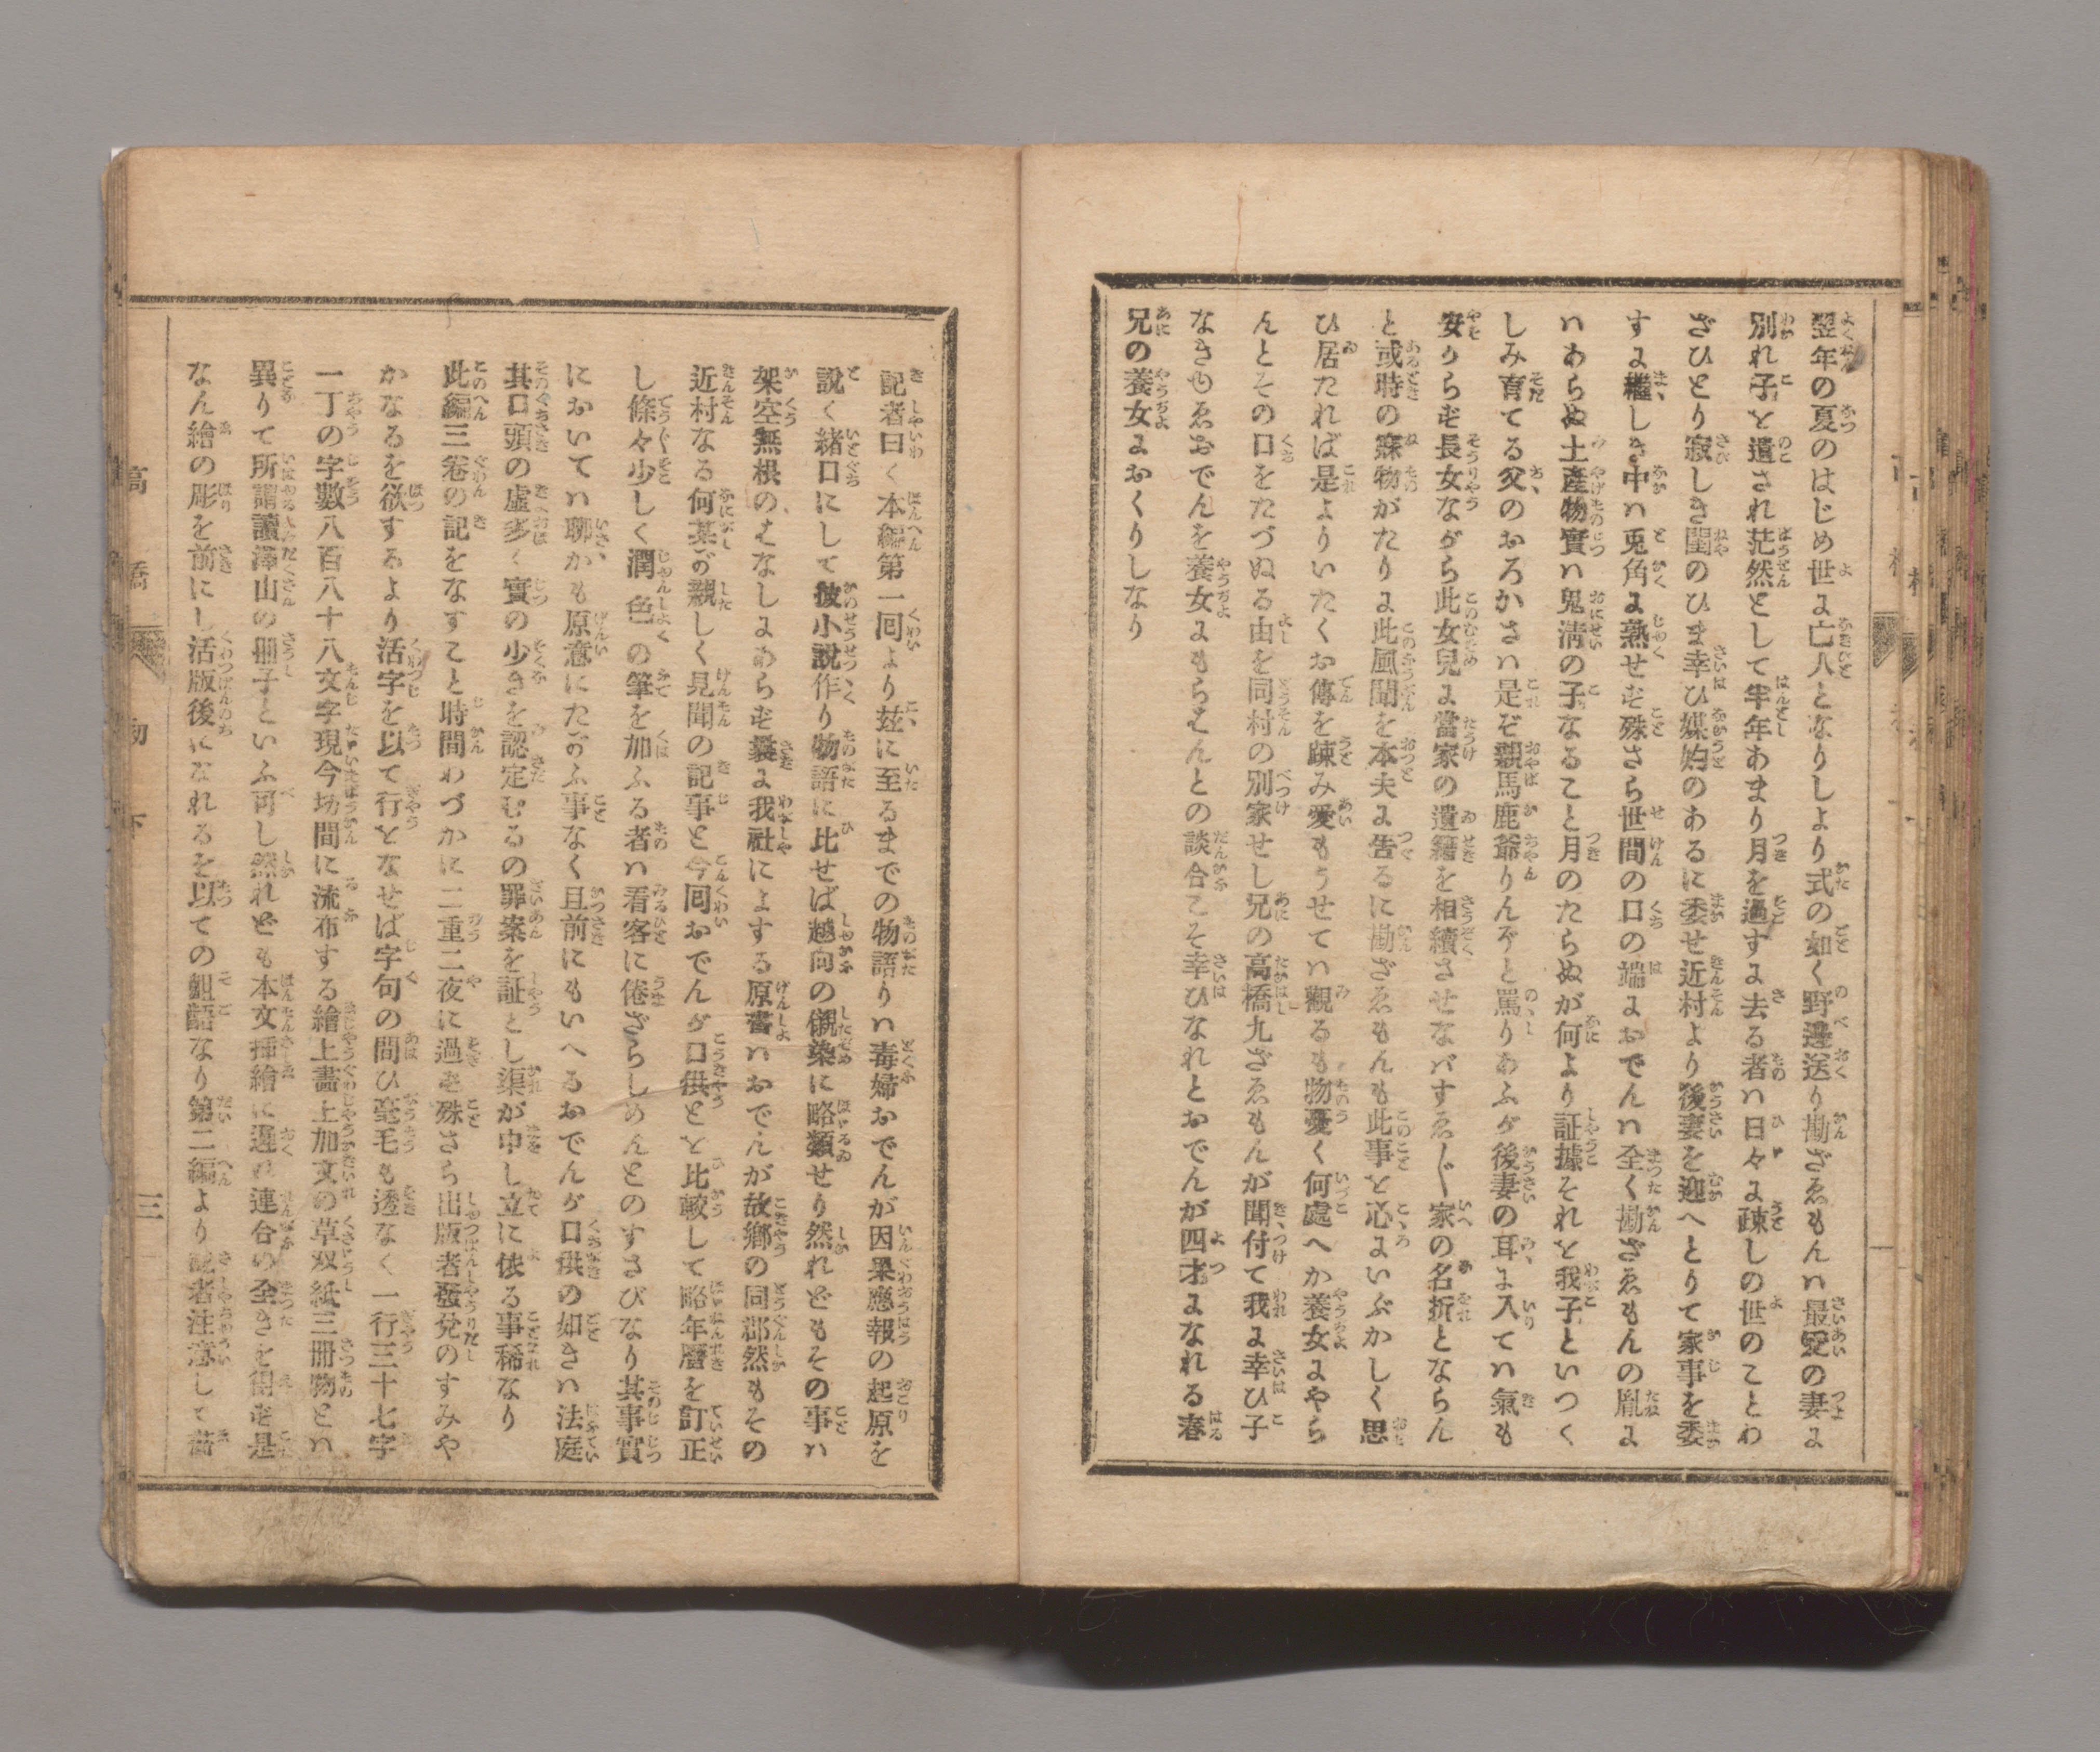 翌年の夏のはじめ世に亡人となりしより式の如く野邊送り勘ざゑもんハ最愛の妻に
別れ子を遺され茫然として半年あまり月を過すに去る者ハ日々に疎しの世のことわ
ざひとり寂しき閨のひま幸ひ媒妁のあるに委せ近村より後妻を迎へとりて家事を委
すに繼しき中ハ兎角に熟せず殊さら世間の口の端におでんハ全く勘ざゑもんの胤に
ハあらぬ土産物實ハ鬼淸の子なること月のたらぬが何より証據それを我子といつく
しみ育てる父のおろかさハ是ぞ親馬鹿爺りんぞと罵りあふが後妻の耳に入てハ氣も
安からず長女ながら此女兒に當家の遺籍を相續させなバすゑ〴〵家の名折とならん
と或時の寐物がたりに此風聞を本夫に告るに勘ざゑもんも此事を心にいぶかしく思
ひ居たれば是よりいたくお傳を疎み愛もうせてハ觀るも物憂く何處へか養女にやら
んとその口をたづぬる由を同村の別家せし兄の高橋九ざゑもんが聞付て我に幸ひ子
なきゆゑおでんを養女にもらはんとの談合こそ幸ひなれとおでんが四才になれる春
兄の養女におくりしなり
記者曰く本編第一囘より茲に至るまでの物語りハ毒婦おでんが因果應報の起原を
說く緒口にして彼小說作り物語に比せば趣向の儭染に略類せり然れどもその事ハ
架空無根のはなしにあらず曩に我社によする原書ハおでんが故鄕の同郡然もその
近村なる何某が親しく見聞の記事と今囘おでんが口供とを比較して略年曆を訂正
し條々少しく潤色の筆を加ふる者ハ看客に倦ざらしめんとのすさびなり其事實
においてハ聊かも原意にたがふ事なく且前にもいへるおでんが口供の如きハ法庭
其口頭の虛多く實の少きを認定むるの罪案を証とし渠が申し立に依る事稀なり
此編三卷の記をなすこと時間わづかに二重二夜に過ず殊さら出版者發兌のすみや
かなるを欲するより活字を以て行となせば字句の間ひ毫毛も透なく一行三十七字
一丁の字數八百八十八文字現今坊間に流布する繪上畵上加文の草双紙三冊物とハ
異りて所謂讀澤山の冊子といふ可し然れども本文挿繪に遲れ連合の全きを得ず是
なん繪の彫を前にし活版後になれるを以ての齟語なり第二編より記者注意して
高橋
初
下
三